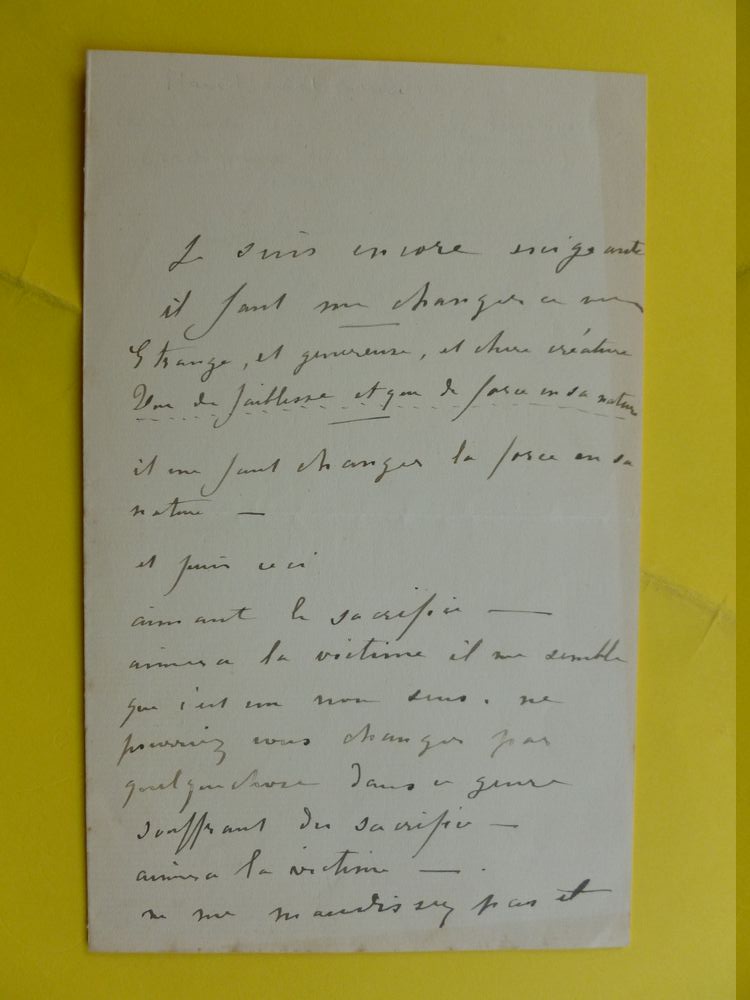 Je suis encore exigeante
il faut me changer ce vers
Etrange, et genereuse, et chere créature
Que de faiblesse et que de force en sa nature
il me faut changer la force en sa
nature —
et puis ceci
aimant le sacrifice —
aimera la victime il me semble
que c'est un non sens. ne
pourriez vous changer par
quelquechose dans ce genre
souffrant du sacrifice —
aimera la victime — .
ne me maudissez pas et